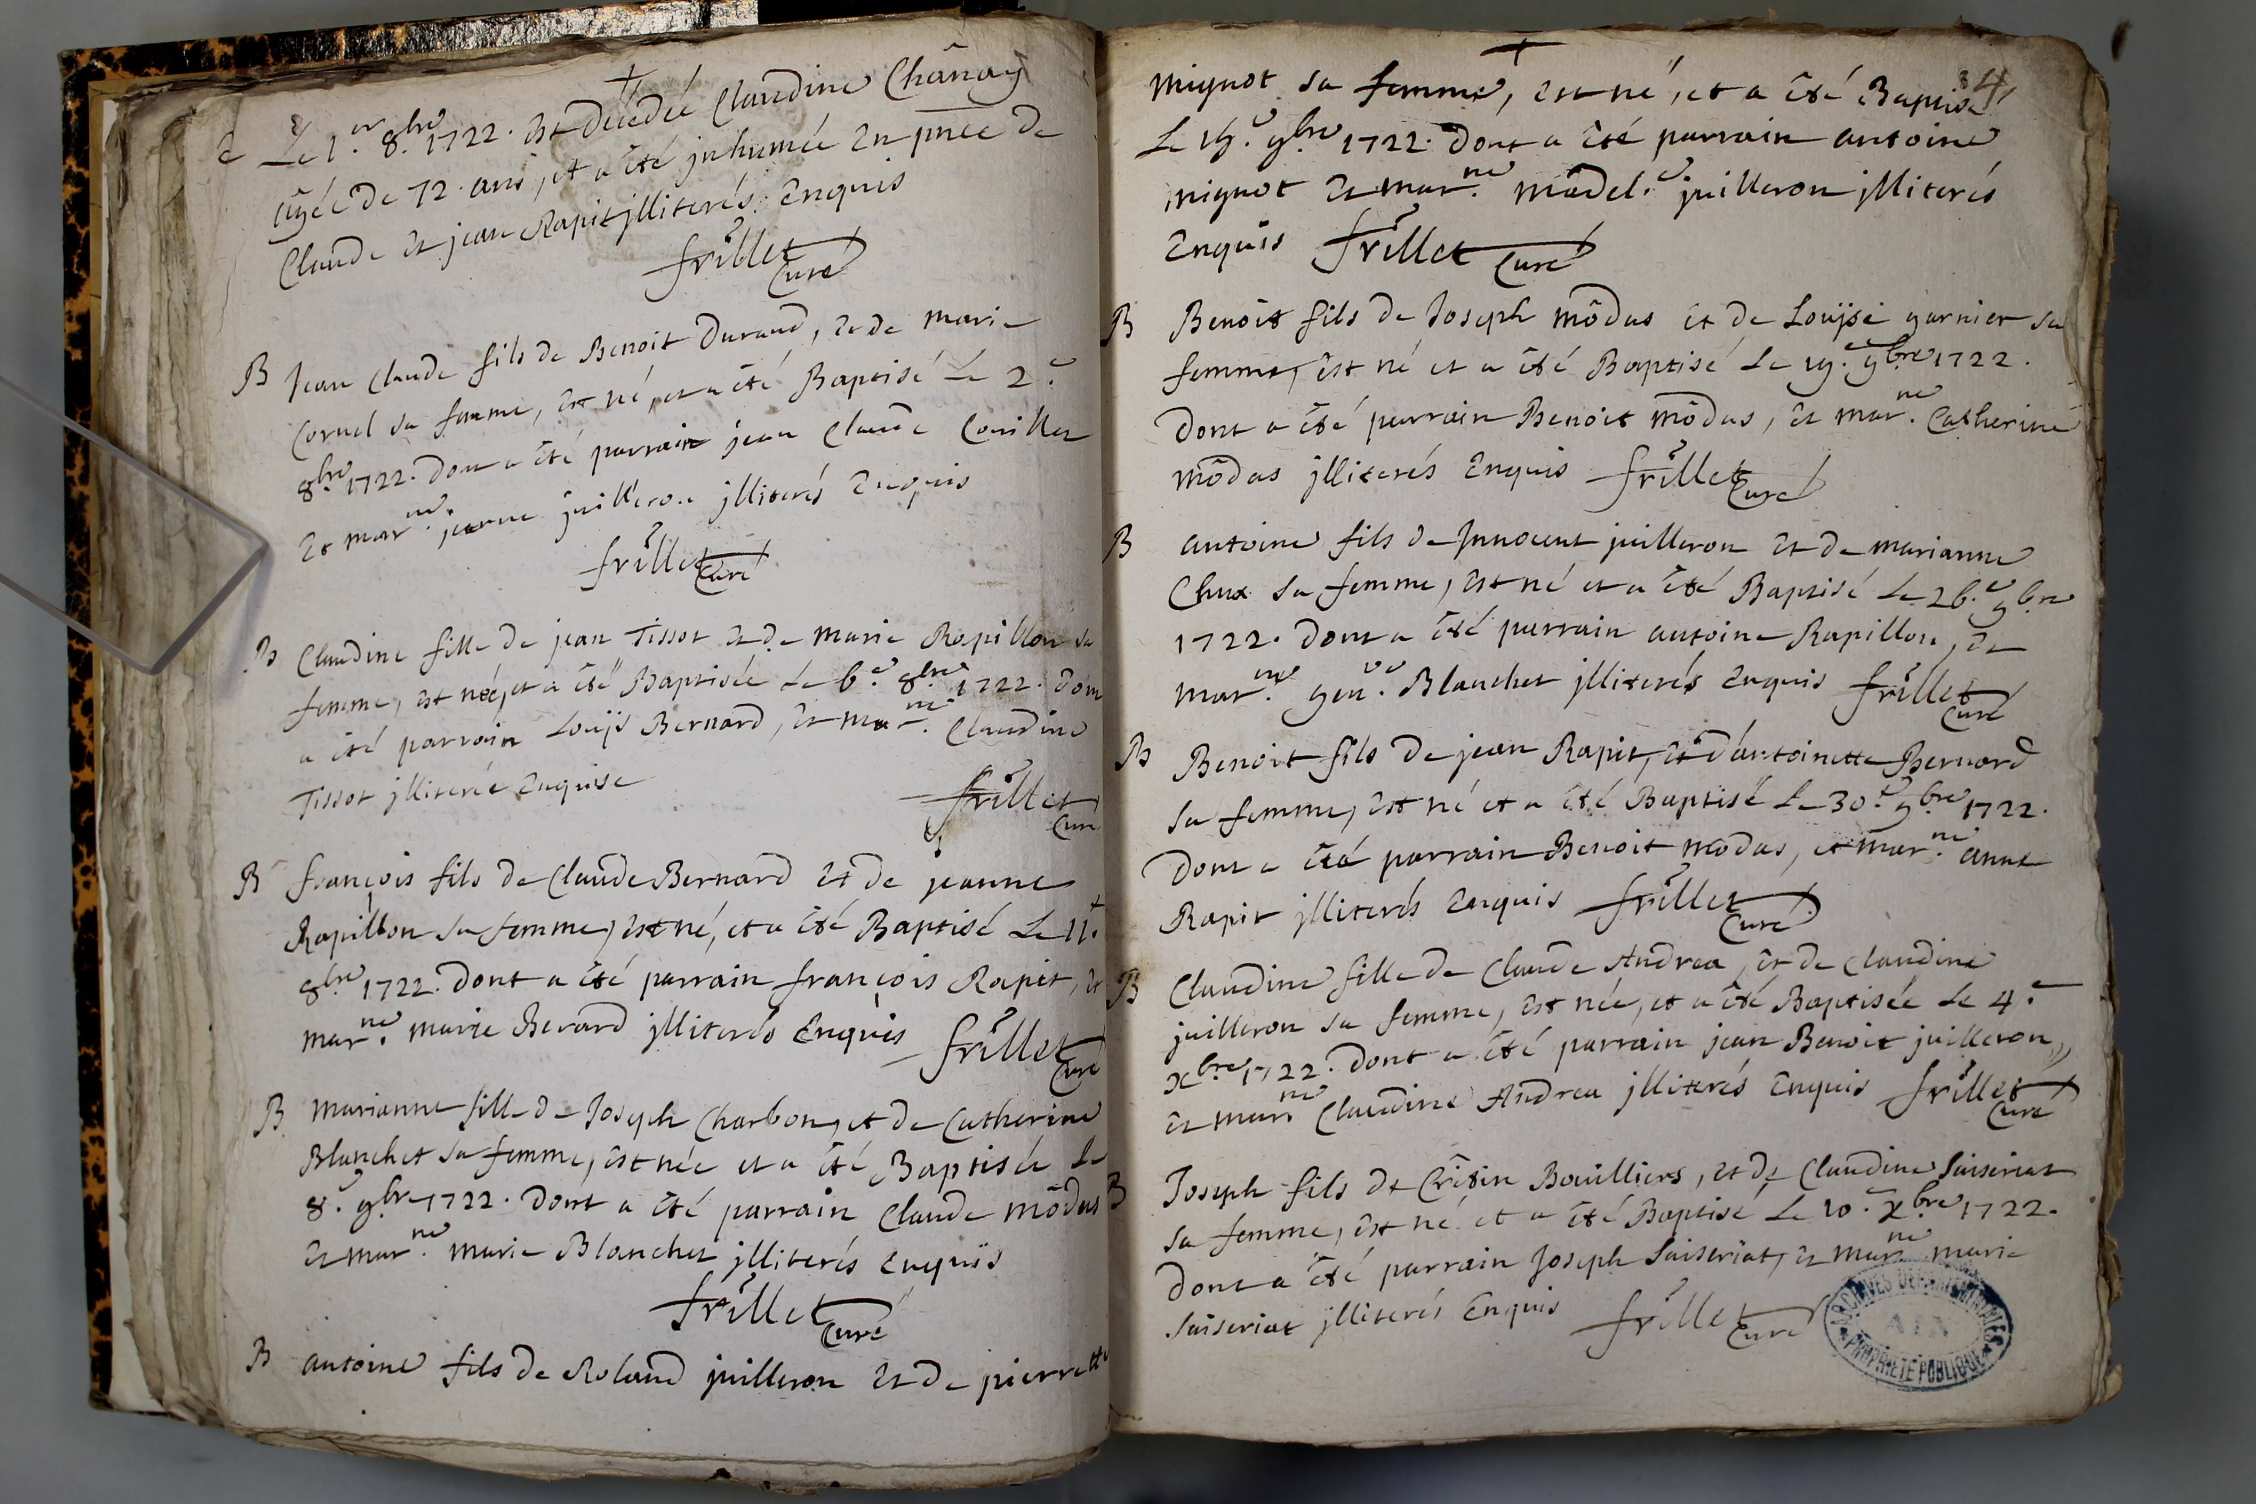 Le 1.er 8.bre 1722. est decedeé Claudine Chânay
agéé de 72. ans, et a été jnhumée en pñce de
Claude et jean Rapit jlliterés Enquis
frillet Curé
B Jean Claude fils de Benoit Durand, et de marie
Cornel sa femme, est né, et a été Baptisé Le 2.e
8.bre 1722. Dont a été parrain jean Claude Couillet
et mar.ne jeanne juilleron jlliterés Enquis
frillet Curé
B Claudine fille de jean Tissot et de marie Rapillon sa
femme, est néé, et a été Baptisée Le 6.e 8.bre 1722. Dont
a été parrain Louijs Bernard, et mar.ne Claudine
Tissot jlliterée Enquise
frillet Curé
B françois fils de Claude Bernard et de jeanne
Rapillon sa femme, est né, et a été Baptisé Le 11.e
8.bre 1722. Dont a été parrain françois Rapit, et
mar.ne marie Berard jlliterés Enquis frillet Curé
B marianne fille de Joseph Charbon, et de Catherine
Blanchet sa femme, est née et a été Baptisée Le
8.e 9.bre 1722. Dont a été parrain Claude môdas
et mar.ne marie Blanchet jlliterés Enquis
frillet Curé
B antoine fils de Roland juilleron et de pierrette
mignot sa femme, est né, et a été Baptisé
Le 15.e 9.bre 1722. Dont a été parrain antoine
mignot et mar.ne madel.e juilleron jlliterés
Enquis frillet Curé
B Benoit fils de Joseph môdas et de Louijse garnier sa
femme, est né et a été Baptisé Le 19.e 9.bre 1722.
Dont a été parrain Benoit môdas, et mar.ne Catherine
môdas jlliterés Enquis frillet Curé
B antoine fils de Jnnocent juilleron et de marianne
Chux sa femme, est né et a été Baptisé Le 26.e 9.bre
1722. Dont a été parrain antoine Rapillon, et
mar.ne gen.ve Blanchet jlliterés Enquis frillet Curé
B Benoit fils de jean Rapit, et d'antoinette Bernard
sa femme, est né et a été Baptisé Le 30.e 9.bre 1722.
Dont a été parrain Benoit môdas, et mar.ne anne
Rapit jlliterés Enquis frillet Curé
B Claudine fille de Claude Andrea, et de Claudine
juilleron sa femme, est née, et a été Baptisée Le 4.e
Xbre 1722. Dont a été parrain jean Benoit juilleron,
et mar.ne Claudine Andrea jlliterés Enquis frillet Curé
B Joseph fils de Crêtin Bouilliers, et de Claudine Saiseriat
sa femme, est né et a été Baptisé Le 10.e Xbre 1722.
Dont a été parrain Joseph Saiseriat, et mar.ne marie
Saiseriat jlliterés Enquis frillet Curé
ARCHIVES DÉPARTEMENTALES
AIN
PROPRIÉTÉ PUBLIQUE